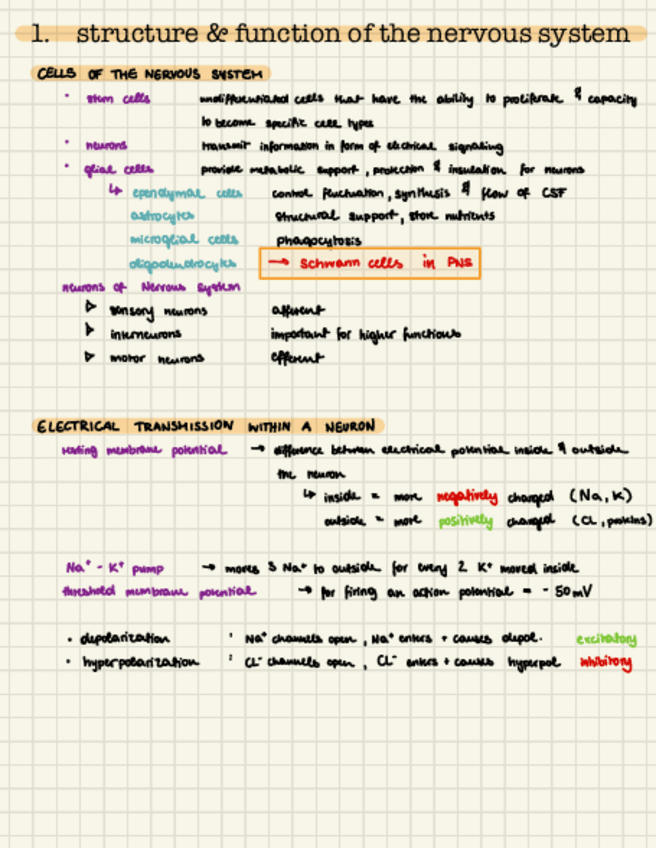 1. structure & function of the nervous system
CELLS OF THE NERVOUS SYSTEM
• stem cells undifferentiated cells that have the ability to proliferate & capacity
to become specific cell types
• neurons transmit information in form of electrical signaling
• glial cells provide metabolic support, protection & insulation for neurons
↳ ependymal cells control fluctuation, synthesis & flow of CSF
astrocytes structural support, store nutrients
microglial cells phagocytosis
oligodendrocytes → Schwann cells in PNS
neurons of Nervous System
▷ sensory neurons afferent
▷ interneurons important for higher functions
▷ motor neurons efferent
ELECTRICAL TRANSMISSION WITHIN A NEURON
resting membrane potential → difference between electrical potential inside & outside
the neuron
↳ inside = more negatively charged (Na, K)
outside = more positively charged (CL, proteins)
Na⁺ - K⁺ pump → moves 3 Na⁺ to outside for every 2 K⁺ moved inside
threshold membrane potential → for firing an action potential = - 50 mV
• depolarization : Na⁺ channels open, Na⁺ enters + causes depol. excitatory
• hyperpolarization : CL⁻ channels open, CL⁻ enters + causes hyperpol inhibitory